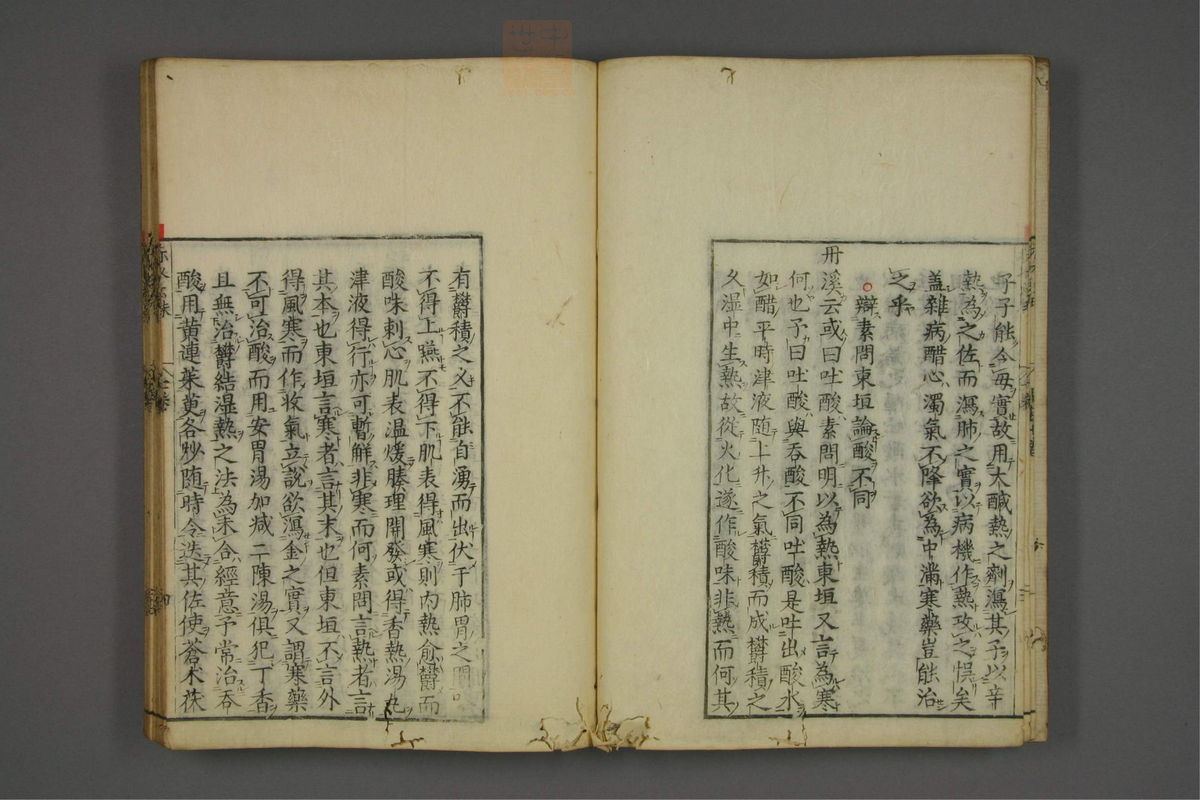 子子能令母實故用大鹹熱之劑瀉其子以辛
熱為之佐而瀉肺之實以病機作熱攻之悞矣
盖雜病醋心濁氣不降欲為中滿寒藥豈能治
之乎
○辯素問東垣論酸不同
丹溪云或曰吐酸素問明以為熱東垣又言為寒
何也予曰吐酸與吞酸不同吐酸是吐出酸水
如醋平時津液随上升之氣欝積而成欝積之
久湿中生熱故從火化遂作酸味非熱而何其
有欝積之久不能自湧而出伏于肺胃之間
不得上嚥不得下肌表得風寒則内熱愈欝而
酸味刺心肌表温煖腠理開發或得香熱湯丸
津液得行亦可暫觧非寒而何素問言熱者言
其本也東垣言寒者言其末也但東垣不言外
得風寒而作收氣立說欲瀉金之實又謂寒藥
不可治酸而用安胃湯加减二陳湯俱犯丁香
且無治欝結湿熱之法為未合經意予常治吞
酸用黄連茱萸各炒随時令迭其佐使蒼木茯